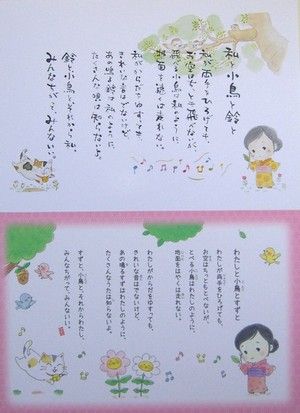 私と小鳥と鈴と
私が両手をひろげても、
お空はちっとも飛べないが、
飛べる小鳥は私のように、
地面を速くは走れない。
私がからだをゆすっても、
きれいな音はでないけど、
あの鳴る鈴は私のように
たくさんな唄は知らないよ。
鈴と、小鳥と、それから私、
みんなちがって、みんないい。
わたしと小鳥とすずと
わたしが両手をひろげても、
お空はちっともとべないが、
とべる小鳥はわたしのように、
地面をはやくは走れない。
わたしがからだをゆすっても、
きれいな音はでないけど、
あの鳴るすずはわたしのように、
たくさんなうたは知らないよ。
すずと、小鳥と、それからわたし、
みんなちがって、みんないい。